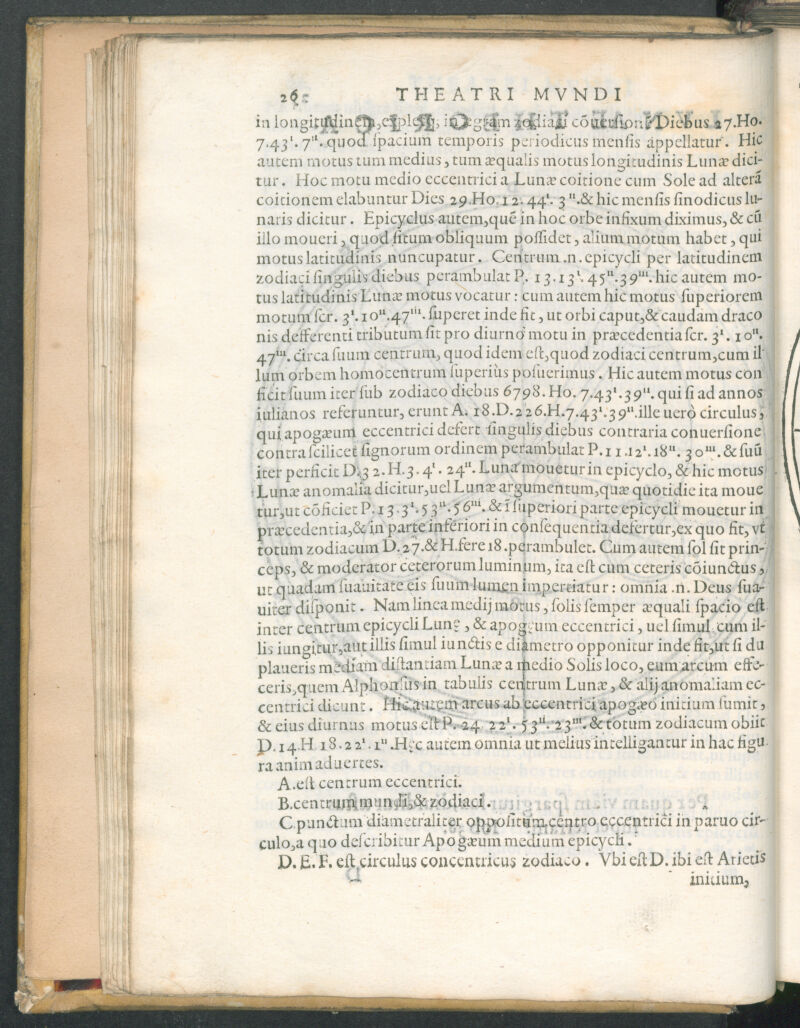 26 THEATRI MVNDI
in longitudinem, expleta, integram zodiaci cōuersione Diebus 27.Ho.
7.43ˡ.7ˡˡ. quod ſpacium temporis periodicus menſis appellatur. Hic
autem motus tum medius, tum æqualis motus longitudinis Lunæ dici-
tur. Hoc motu medio eccentrici a Lunæ coitione cum Sole ad alterā
coitionem elabuntur Dies 29.Ho.12.44ˡ.3ˡˡ.& hic menſis ſinodicus lu-
naris dicitur. Epicyclus autem, quē in hoc orbe infixum diximus, & cū
illo moueri, quod ſitum obliquum poſſidet, alium motum habet, qui
motus latitudinis nuncupatur. Centrum .n. epicycli per latitudinem
zodiaci ſingulis diebus perambulat P. 13.13ˡ.45ˡˡ.39ˡˡˡ. hic autem mo-
tus latitudinis Lunæ motus vocatur: cum autem hic motus ſuperiorem
motum ſcr. 3ˡ.10ˡˡ.47ˡˡˡ. ſuperet inde fit, ut orbi caput,& caudam draco
nis defferenti tributum ſit pro diurno motu in præcedentia ſcr. 3ˡ.10ˡˡ.
47ˡˡˡ. circa ſuum centrum, quod idem eſt,quod zodiaci centrum,cum il
lum orbem homocentrum ſuperius poſuerimus. Hic autem motus con
ficit ſuum iter ſub zodiaco diebus 6798.Ho.7.43ˡ.39ˡˡ. qui ſi ad annos
iulianos referuntur, erunt A. 18.D.226.H.7.43ˡ.39ˡˡ.ille uero circulus,
qui apogæum eccentrici defert ſingulis diebus contraria conuerſione
contra ſcilicet ſignorum ordinem perambulat P.11.12ˡ.18ˡˡ.30ˡˡˡ.& ſuū
iter perficit D.32.H.3.4ˡ.24ˡˡ. Luna mouetur in epicyclo, & hic motus
Lunæ anomalia dicitur,uel Lunæ argumentum,quæ quotidie ita moue
tur,ut cōficiet P.13.3ˡ.53ˡˡ.56ˡˡˡ.& ī ſuperiori parte epicycli mouetur in
præcedentia,& in parte inferiori in conſequentia defertur,ex quo fit, vt
totum zodiacum D.27.& H.fere 18.perambulet. Cum autem ſol ſit prin-
ceps, & moderator ceterorum luminum, ita eſt cum ceteris cōiunctus,
ut quadam ſuauitate eis ſuum lumen impertiatur: omnia .n. Deus ſua-
uiter diſponit. Nam linea medij motus, ſolis ſemper æquali ſpacio eſt
inter centrum epicycli Lunę, & apogęum eccentrici, uel ſimul cum il-
lis iungitur,aut illis ſimul iunctis e diametro opponitur inde fit,ut ſi du
plaueris mediam diſtantiam Lunæ a medio Solis loco, eum arcum effe-
ceris,quem Alphonſus in tabulis centrum Lunæ, & alij anomaliam ec-
centrici dicunt. Hic autem arcus ab eccentrici apogæo initium ſumit,
& eius diurnus motus eſt P. 24 22ˡ.53ˡˡ.23ˡˡˡ.& totum zodiacum obiit
D.14.H 18.22ˡ.1ˡˡ.Hęc autem omnia ut melius intelligantur in hac figu
ra animaduertes.
A.eſt centrum eccentrici.
B.centrum mundi,& zodiaci.
C.punctum diametraliter oppoſitum centro eccentrici in paruo cir-
culo,a quo deſcribitur Apogæum medium epicycli.
D.E.F. eſt circulus concentricus zodiaco. Vbi eſt D. ibi eſt Arietis
initium,